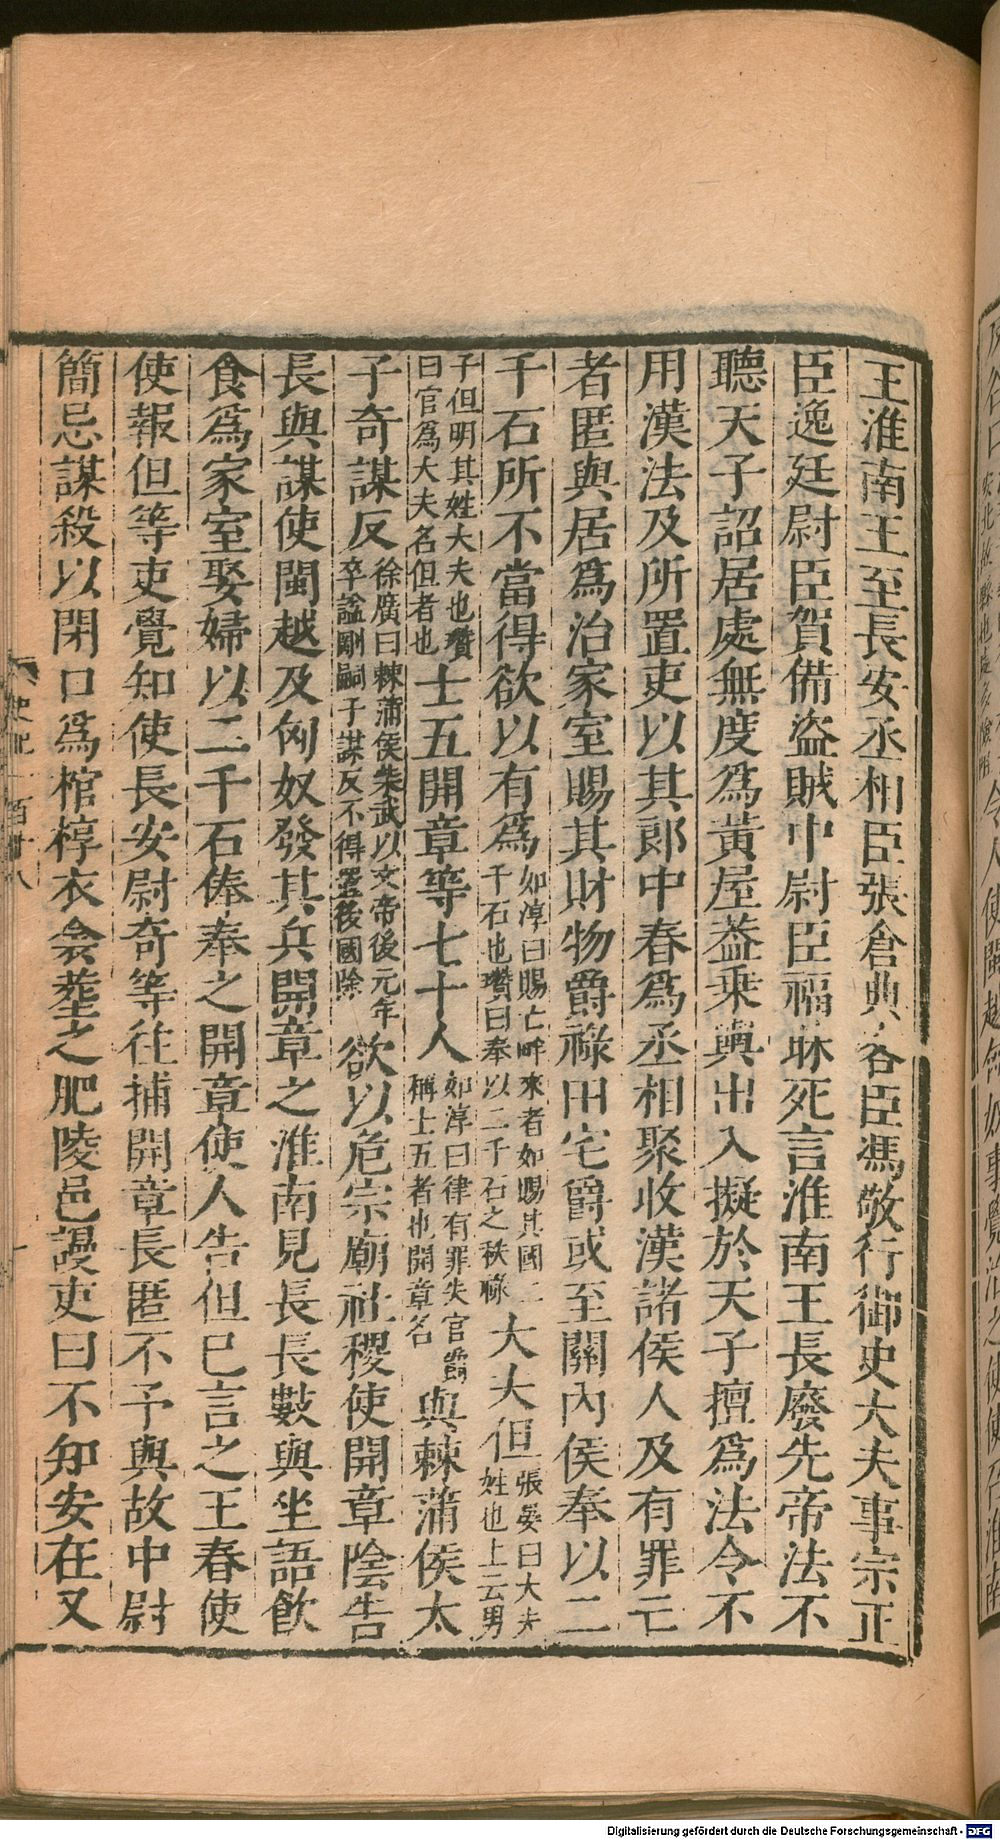 王淮南王至長安丞相臣張倉典客臣馮敬行御史大夫事宗正
臣逸廷尉臣賀備盜賊中尉臣福昧死言淮南王長廢先帝法不
聽天子詔居處無度爲黃屋葢乗輿出入擬於天子擅爲法令不
用漢法及所置吏以其郎中春爲丞相聚收漢諸侯人及有罪亡
者匿與居爲治家室賜其財物爵祿田宅爵或至關內侯奉以二
千石所不當得欲以有爲如淳曰賜亡畔來者如賜其國二千石也瓚曰奉以二千石之秩祿大夫但張晏曰大夫姓也上云男
子但明其姓大夫也瓚曰官爲大夫名但者也士五開章等七十人如淳曰律有罪失官爵稱士五者也開章名與棘蒲侯太
子奇謀反徐廣曰棘蒲侯柴武以文帝後元年卒謚剛嗣子謀反不得置後國除欲以危宗廟社稷使開章陰告
長與謀使閩越及匈奴發其兵開章之淮南見長長數與坐語飲
食爲家室娶婦以二千石俸奉之開章使人告但已言之王春使
使報但等吏覺知使長安尉奇等往捕開章長匿不予與故中尉
簡忌謀殺以閉口爲棺椁衣衾塟之肥陵邑謾吏曰不知安在又
史記一百十八
Digitalisierung gefördert durch die Deutsche Forschungsgemeinschaft - DFG